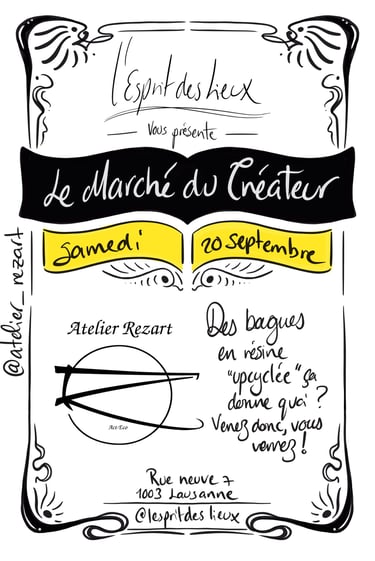 l'Esprit des lieux
Vous présente
Le Marché du Créateur
Samedi 20 septembre
@atelier_rezart
Atelier Rezart
Art Eco
Des bagues
en résine
"upcyclée" ça
donne quoi ?
Venez donc, vous
verrez !
Rue neuve 7
1003 Lausanne
@lesprit des lieux